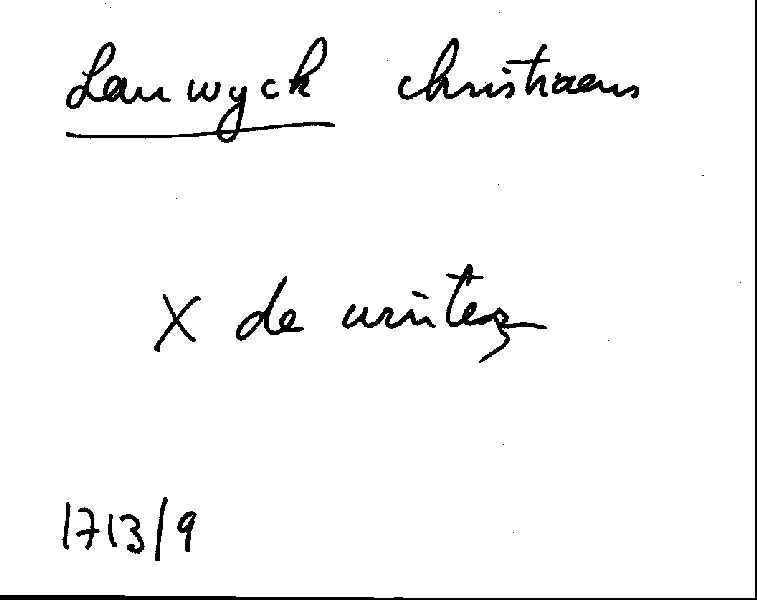 Lauwyck christiaens
X de
1713/9